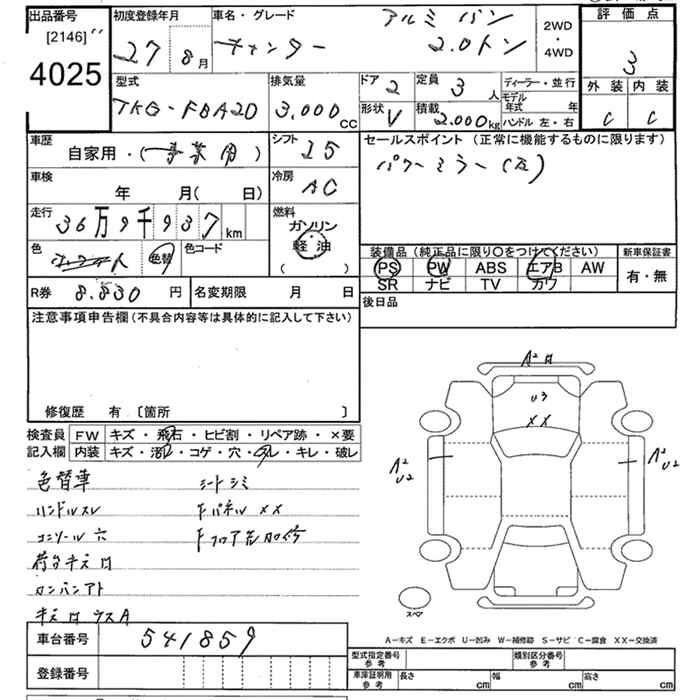 出品番号
[2146]
4025
初度登録年月
27 年 8月
車名・グレード
アルミバン
キャンター 2.0トン
2WD
・
4WD
評価点
3
外装 内装
C C
型式
TKG-FBA20
排気量
3,000 CC
ドア 2
形状 V
定員 3 人
積載 2,000kg
ディーラー・並行
モデル年式 年
ハンドル 左・右
車歴
自家用・(事業用)
シフト I5
セールスポイント(正常に機能するものに限ります)
パワーミラー(左)
車検
年 月( 日)
冷房 AC
走行
36万9千937km
燃料
ガソリン
軽油
( )
色
ホワイト
色替
色コード
装備品(純品に限り○をつけてください)
PS PW ABS エアB AW
SR ナビ TV カワ
新車保証書
有・無
R券 8,830 円
名変期限 月 日
後日品
注意事項申告欄(不具合内容等は具体的に記入して下さい)
修復歴 有 [箇所 ]
検査員
記入欄
FW キズ・飛石・ヒビ割・リペア跡・×要
内装 キズ・汚れ・コゲ・穴・スレ・キレ・破レ
色替車 シートシミ
ハンドルスレ FパネルXX
コンソール穴 Fフロア先加修
荷台キズ凹
カンバンアト
キズ凹ウスA
A2凹
U3
XX
A2
U2
A2
U2
スペア
A−キズ E−エクボ U−凹み W−補修跡 S−サビ C−腐食 XX−交換済
車台番号 541859
登録番号
型式指定番号
参考
類別区分番号
参考
車庫証明用
参考
長さ cm 幅 cm 高さ cm